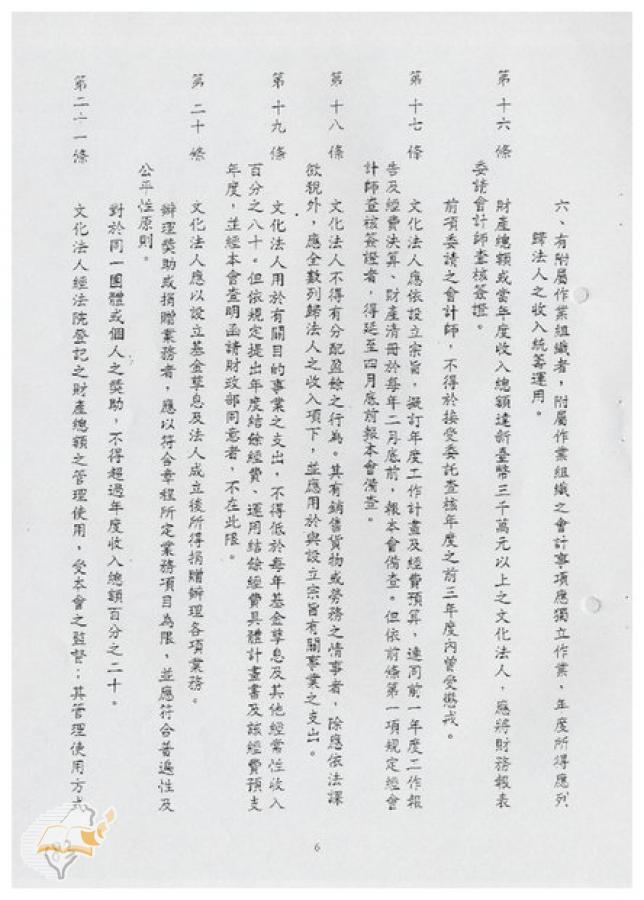 六、有附屬作業組織者，附屬作業組織之會計事項應獨立作業、年度所得應列
歸法人之收入統籌運用。
第十六條　財產總額或當年度收入總額達新臺幣三千萬元以上之文化法人，應將財務報表
委請會計師查核簽證。
前項委請之會計師，不得於接受委託查核年度之前三年度內曾受懲戒。
第十七條　文化法人應依設立宗旨，擬訂年度工作計畫及經費預算，連同前一年度工作報
告及經費決算、財產清冊於每年二月底前，報本會備查。但依前條第一項規定經會
計師查核簽證者，得延至四月底前報本會備查。
第十八條　文化法人不得有分配盈餘之行為。其有銷售貨物或勞務之情事者，除應依法課
徵稅外，應全數列歸法人之收入項下，並應用於與設立宗旨有關事業之支出。
第十九條　文化法人用於有關目的事業之支出，不得低於每年基金孳息及其他經常性收入
百分之八十。但依規定提出年度結餘經費、運用結餘經費具體計畫書及該經費預支
年度，並經本會查明函請財政部同意者，不在此限。
第二十條　文化法人應以設立基金孳息及法人成立後所得捐贈辦理各項業務。
辦理獎助或捐贈業務者，應以符合章程所定業務項目為限，並應符合普遍性及
公平性原則。
對於同一團體或個人之獎助，不得超過年度收入總額百分之二十。
第二十一條　文化法人經法院登記之財產總額之管理使用，受本會之監督；其管理使用方式
6